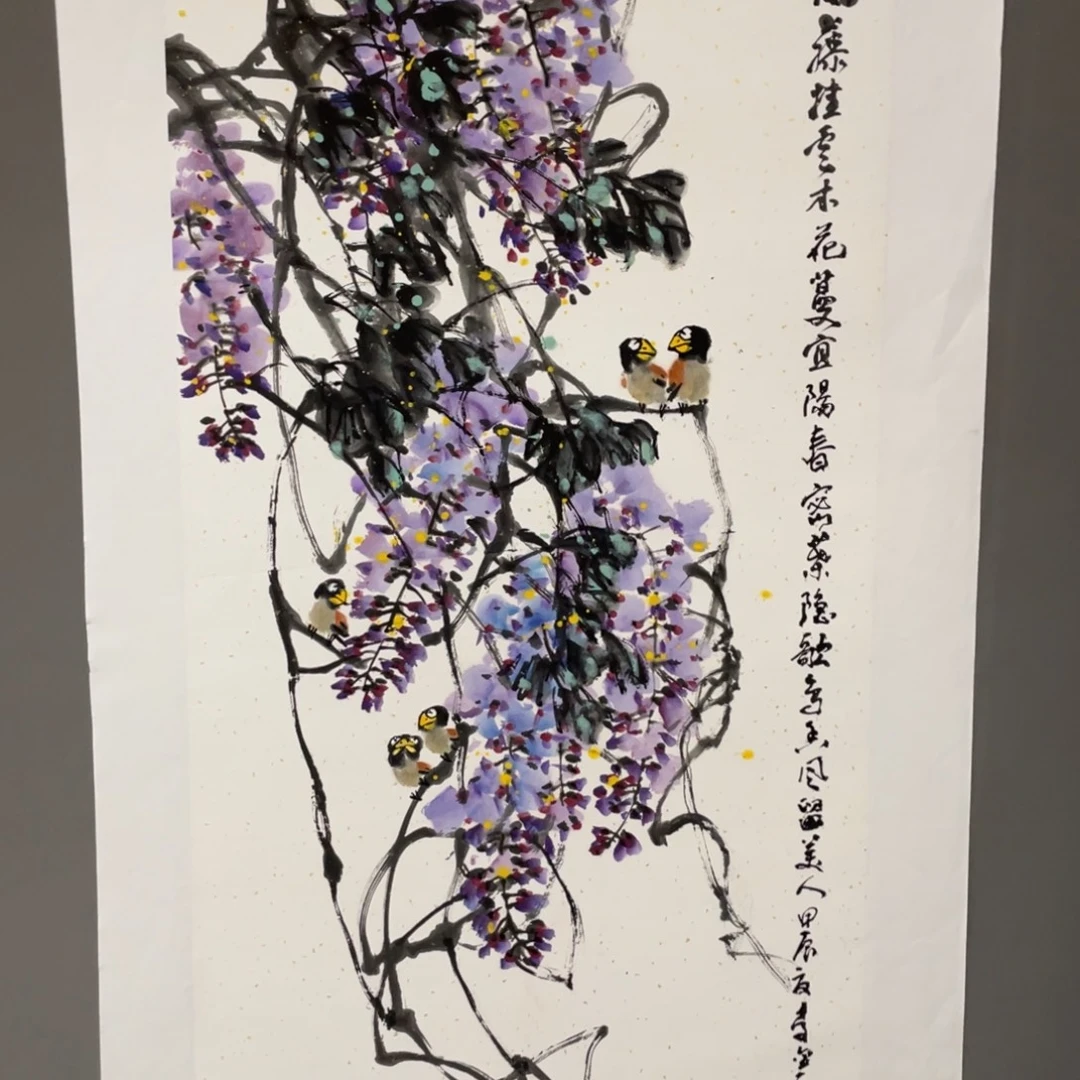 藤挂云木花蔓宜陽春密葉隐歌鸟香风留美人甲辰